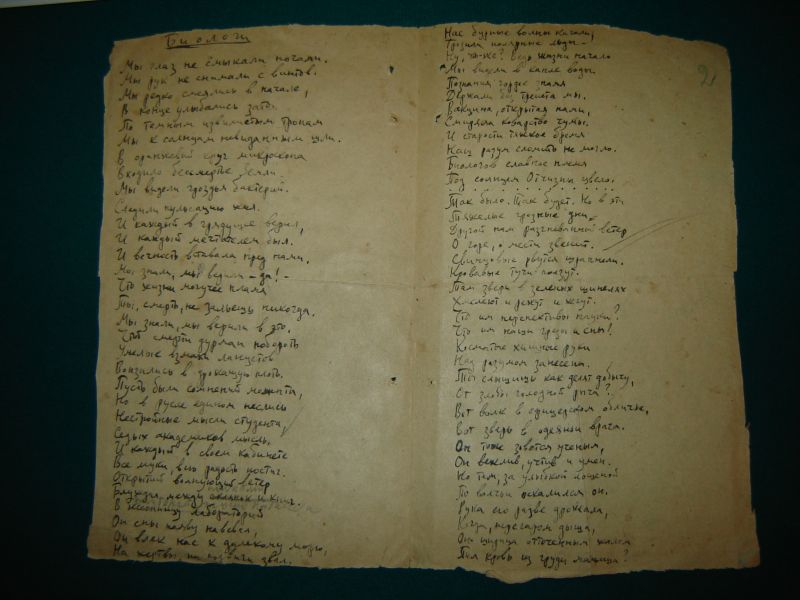 Биологи
Мы глаз не смыкали ночами.
Мы рук не снимали с винтов.
Мы редко смеялись в начале,
В конце улыбались зато.
По темным извилистым тропам
Мы к солнцам невиданным шли.
В оранжевый круг микроскопа
Входило бессмертье Земли.
Мы видели гроздья бактерий.
Следили пульсацию жил.
И каждый в грядущее верил,
И каждый мечтателем был.
И вечность вставала пред нами.
Мы знали, мы верили – да! –
Что жизни могучее пламя
Ты, смерть, не зальешь никогда.
Мы знали, мы верили в это.
Чтоб смерти дурман побороть
Умелые взмахи ланцетов
Вонзились в дрожащую плоть.
Пусть были сомнений моменты,
Но в русле едином неслись
Нестройные мысли студента,
Седых академиков мысль.
И каждый в своем кабинете
Все муки, всю радость постиг.
Открытий волнующий ветер
Блуждал между склянок и книг.
В лабораторий
Он сны наяву навевал,
Он влек нас к далекому морю,
На жертвы, на подвиги звал.
Нас бурные волны качали,
Грозили полярные льды –
Ну, что ж? Ведь жизни начало
Мы видели в капле воды.
Познания гордое знамя
Держали без трепета мы.
Вакцина, открытая нами,
Смиряла коварство чумы.
И старости тяжкое бремя
Наш разум сломить не могло.
Биологов славное племя
Под солнцем Отчизны цвело.
. . . . . . . . . . . . . .
Так было. Так будет. Но в эти
Тяжелые грозные дни
Другой нам разгневанный ветер
О горе, о мести звенит.
Свинцовые рвутся шрапнели.
Кровавые тучи ползут.
Там звери в зеленых шинелях
и режут и жгут.
Что им перспективы науки?
Что им наши грезы и сны!
Косматые хищные руки
Над разумом занесены.
Ты слышишь как делят добычу,
От злобы голодной рыча?
Вот волк в офицерском обличье,
Вот зверь в одеянии врача.
Он тоже зовется ученым,
Он вежлив, учтив и умен.
Но там, за улыбкой лощеной
По волчьи оскалился он.
Рука его разве дрожала,
Когда, перегаром дыша,
Он шприца отточенным жалом
Пил кровь из груди малыша?